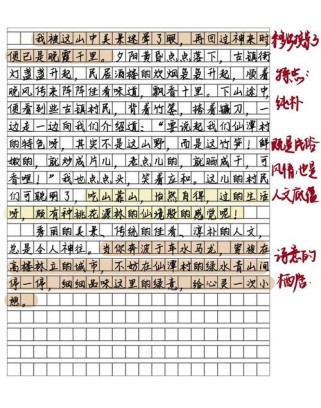 我被这山中美景迷晕了眼，再回过神来时
便已是晚霞千里。夕阳黄昏点点落下，古镇街
灯盏盏升起，民居酒楼的炊烟袅袅升起，顺着
晚风传来阵阵佳肴味道，飘香十里。下山途中
便看到些古镇村民，背着竹篓，拷着镰刀，一
边走一边向我们介绍道：“要说起我们仙潭村
的特色呀，其实不是这山野，而是这竹笋！鲜
嫩的，就炒成片儿，老点儿的，就晒成干，可
香哩！”我也点点头，笑着应和。这儿的村民
们可聪明了，吃山靠山，怡然自得，过的生活
呀，颇有种桃花源林的仙境般的感觉呢！
秀丽的美景、传统的佳肴、淳朴的人文，
总是令人神往。当你奔波于车水马龙，
高楼林立的城市，不妨在仙潭村的绿水青山间
停一停，细细品味这里的绿意，给心灵一次小
憩。
特点：
纯朴
既是民俗
风情，也是
人文底蕴
诗意的
栖居